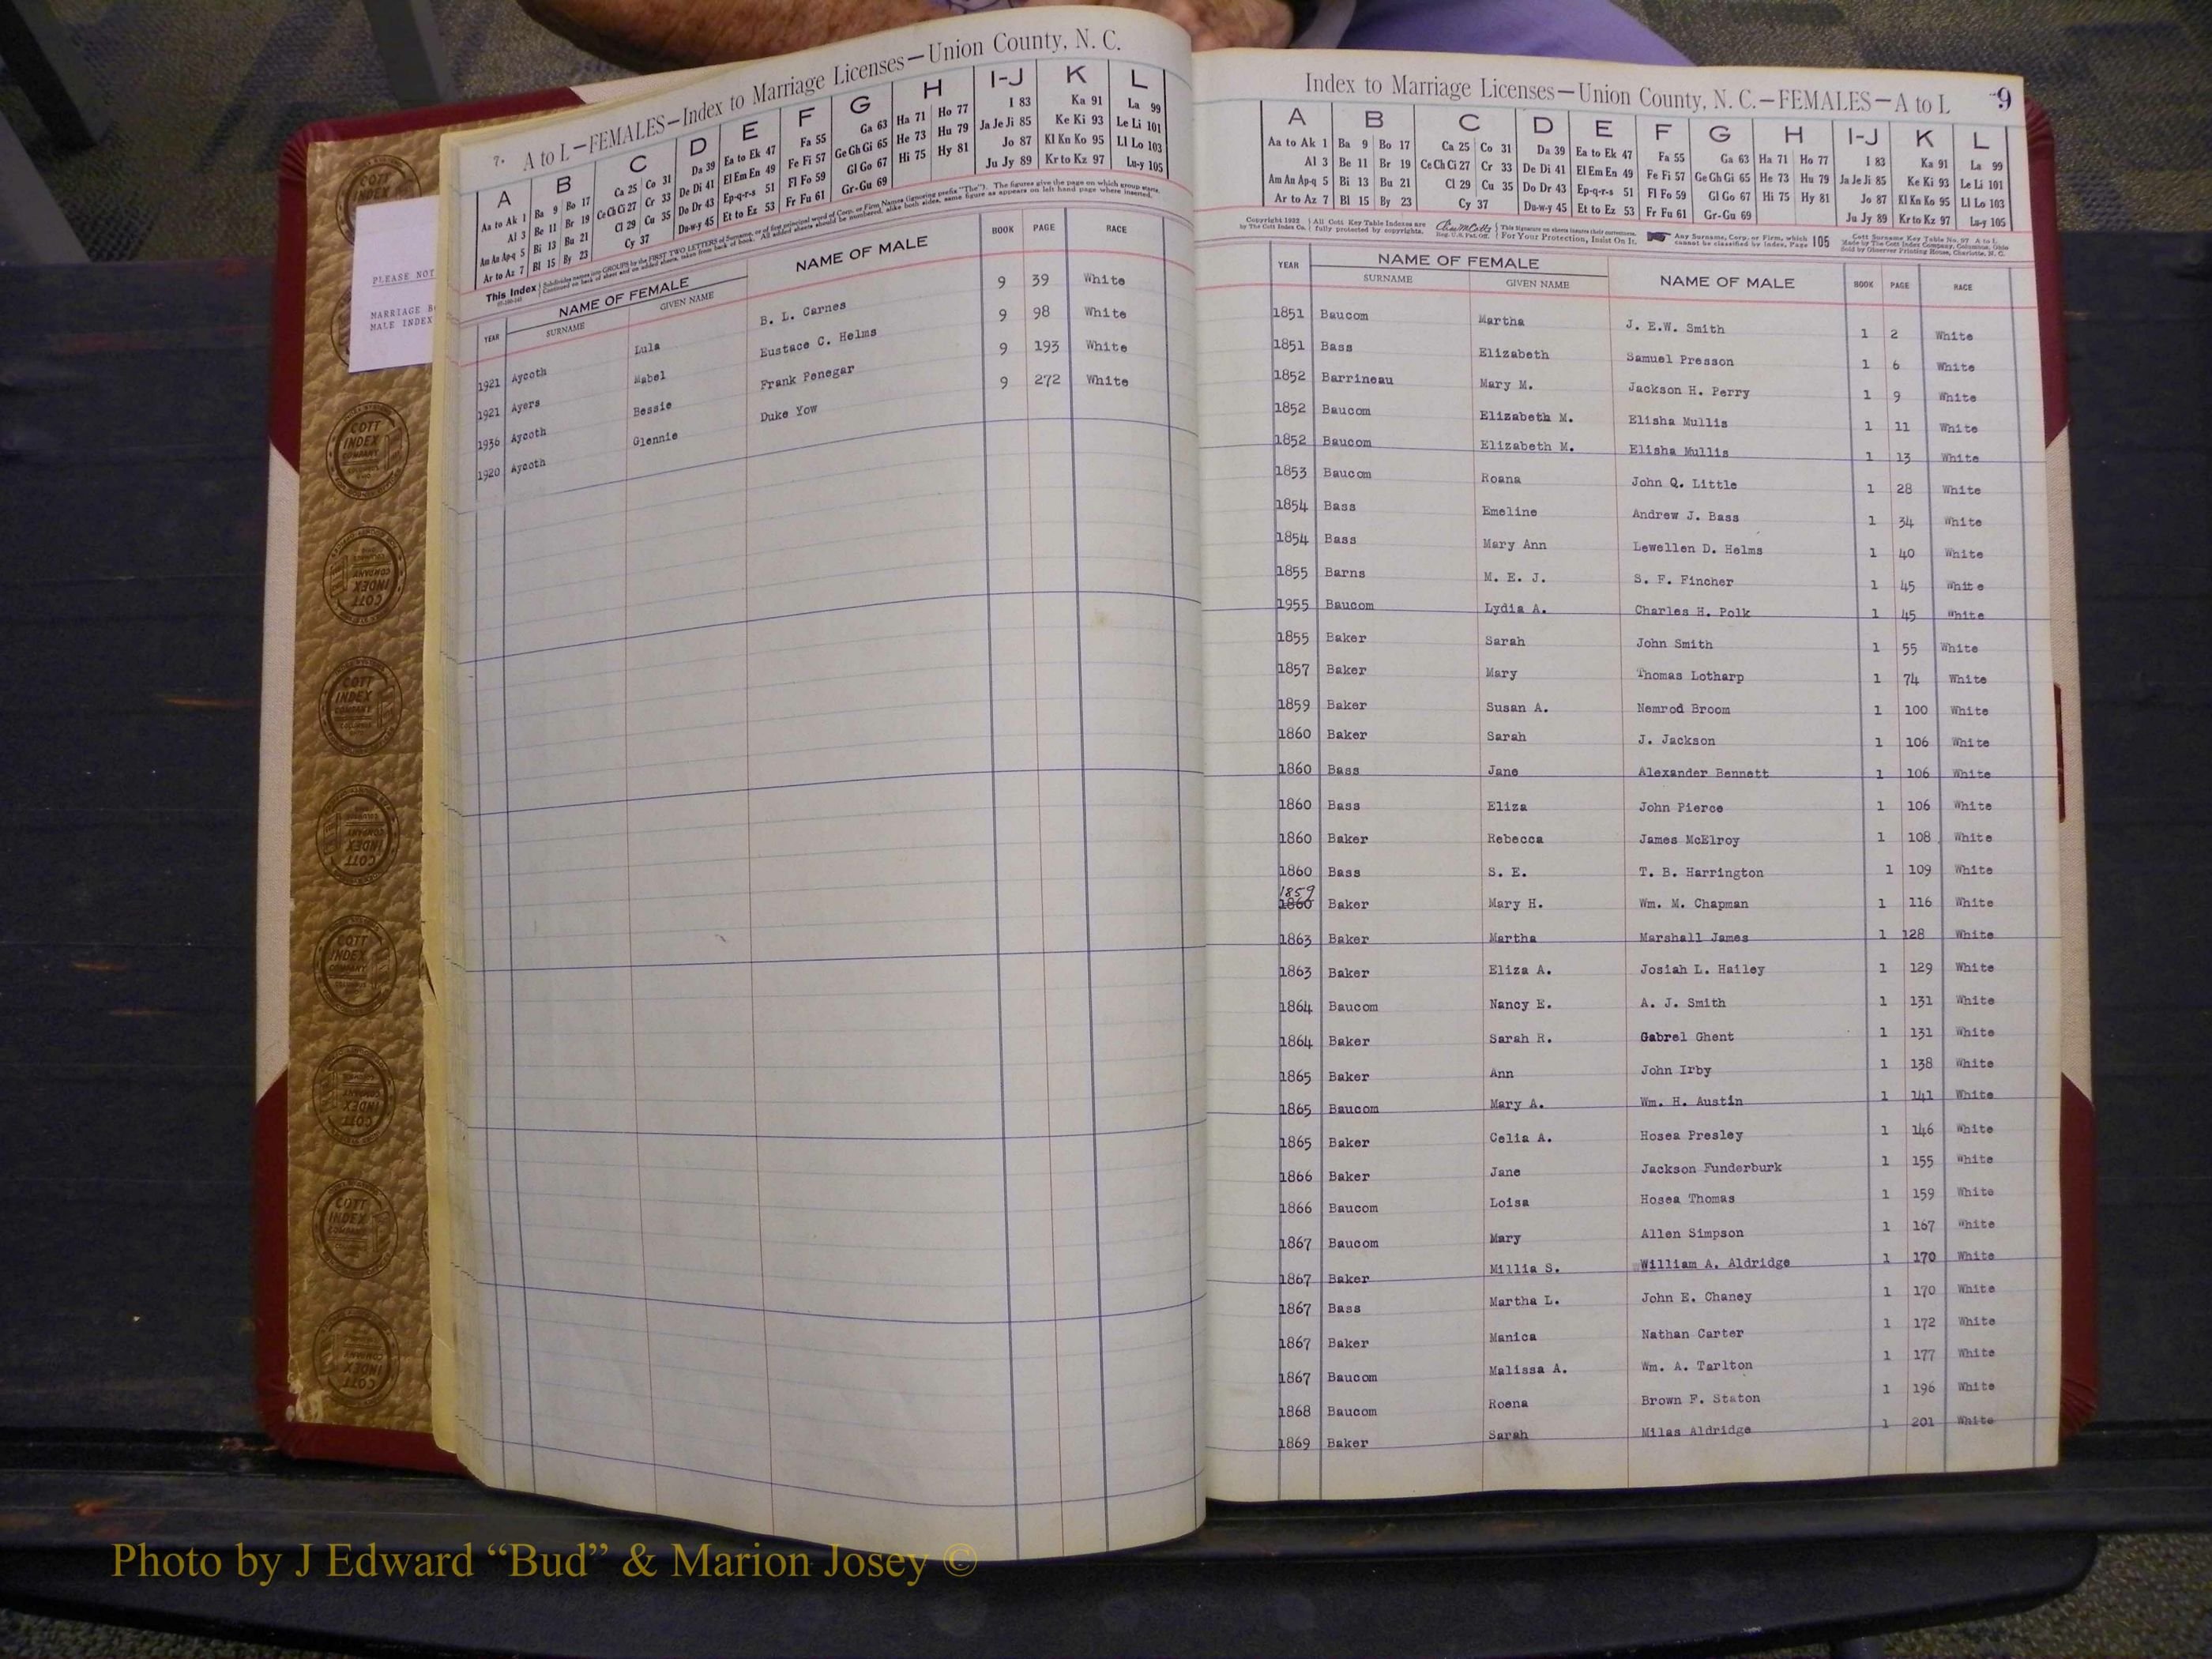 PLEASE NOT
MARRIAGE B
MALE INDEX
7. A to L—FEMALES—Index to Marriage Licenses—Union County, N. C.
A B C D E F G H I-J K L
Aa to Ak 1 Ba 9 Bo 17 Ca 25 Co 31 Da 39 Ea to Ek 47 Fa 55 Ga 63 Ha 71 Ho 77 I 83 Ka 91 La 99
Al 3 Be 11 Br 19 Ce Ch Ci 27 Cr 33 De Di 41 El Em En 49 Fe Fi 57 Ge Gh Gi 65 He 73 Hu 79 Ja Je Ji 85 Ke Ki 93 Le Li 101
Am An Ap-q 5 Bi 13 Bu 21 Cl 29 Cu 35 Do Dr 43 Ep-q-r-s 51 Fl Fo 59 Gl Go 67 Hi 75 Hy 81 Jo 87 Kl Kn Ko 95 Ll Lo 103
Ar to Az 7 Bl 15 By 23 Cy 37 Du-w-y 45 Et to Ez 53 Fr Fu 61 Gr-Gu 69 Ju Jy 89 Kr to Kz 97 Lu-y 105
This Index
YEAR NAME OF FEMALE NAME OF MALE BOOK PAGE RACE
SURNAME GIVEN NAME
1921 Aycoth Lula B. L. Carnes 9 39 White
1921 Ayers Mabel Eustace C. Helms 9 98 White
1936 Aycoth Bessie Frank Penegar 9 193 White
1920 Aycoth Glennie Duke Yow 9 272 White
Index to Marriage Licenses—Union County, N. C.—FEMALES—A to L 9
A B C D E F G H I-J K L
Aa to Ak 1 Ba 9 Bo 17 Ca 25 Co 31 Da 39 Ea to Ek 47 Fa 55 Ga 63 Ha 71 Ho 77 I 83 Ka 91 La 99
Al 3 Be 11 Br 19 Ce Ch Ci 27 Cr 33 De Di 41 El Em En 49 Fe Fi 57 Ge Gh Gi 65 He 73 Hu 79 Ja Je Ji 85 Ke Ki 93 Le Li 101
Am An Ap-q 5 Bi 13 Bu 21 Cl 29 Cu 35 Do Dr 43 Ep-q-r-s 51 Fl Fo 59 Gl Go 67 Hi 75 Hy 81 Jo 87 Kl Kn Ko 95 Ll Lo 103
Ar to Az 7 Bl 15 By 23 Cy 37 Du-w-y 45 Et to Ez 53 Fr Fu 61 Gr-Gu 69 Ju Jy 89 Kr to Kz 97 Lu-y 105
All Cott Key Table Indexes are fully protected by copyrights. For Your Protection, Insist On It. Any Surname, Corp. or Firm, which cannot be classified by Index, Page 105
YEAR NAME OF FEMALE NAME OF MALE BOOK PAGE RACE
SURNAME GIVEN NAME
1851 Baucom Martha J. E.W. Smith 1 2 White
1851 Bass Elizabeth Samuel Presson 1 6 White
1852 Barrineau Mary M. Jackson H. Perry 1 9 White
1852 Baucom Elizabeth M. Elisha Mullis 1 11 White
1852 Baucom Elizabeth M. Elisha Mullis 1 13 White
1853 Baucom Roana John Q. Little 1 28 White
1854 Bass Emeline Andrew J. Bass 1 34 White
1854 Bass Mary Ann Lewellen D. Helms 1 40 White
1855 Barns M. E. J. S. F. Fincher 1 45 White
1955 Baucom Lydia A. Charles H. Polk 1 45 White
1855 Baker Sarah John Smith 1 55 White
1857 Baker Mary Thomas Lotharp 1 74 White
1859 Baker Susan A. Nemrod Broom 1 100 White
1860 Baker Sarah J. Jackson 1 106 White
1860 Bass Jane Alexander Bennett 1 106 White
1860 Bass Eliza John Pierce 1 106 White
1860 Baker Rebecca James McElroy 1 108 White
1860 Bass S. E. T. B. Harrington 1 109 White
1859
1860 Baker Mary H. Wm. M. Chapman 1 116 White
1863 Baker Martha Marshall James 1 128 White
1863 Baker Eliza A. Josiah L. Hailey 1 129 White
1864 Baucom Nancy E. A. J. Smith 1 131 White
1864 Baker Sarah R. Gabrel Ghent 1 131 White
1865 Baker Ann John Irby 1 138 White
1865 Baucom Mary A. Wm. H. Austin 1 141 White
1865 Baker Celia A. Hosea Presley 1 146 White
1866 Baker Jane Jackson Funderburk 1 155 White
1866 Baucom Loisa Hosea Thomas 1 159 White
1867 Baucom Mary Allen Simpson 1 167 White
1867 Baker Millia S. William A. Aldridge 1 170 White
1867 Bass Martha L. John E. Chaney 1 170 White
1867 Baker Manica Nathan Carter 1 172 White
1867 Baucom Malissa A. Wm. A. Tarlton 1 177 White
1868 Baucom Roena Brown F. Staton 1 196 White
1869 Baker Sarah Milas Aldridge 1 201 White
COTT INDEX COMPANY
Photo by J Edward “Bud” & Marion Josey ©